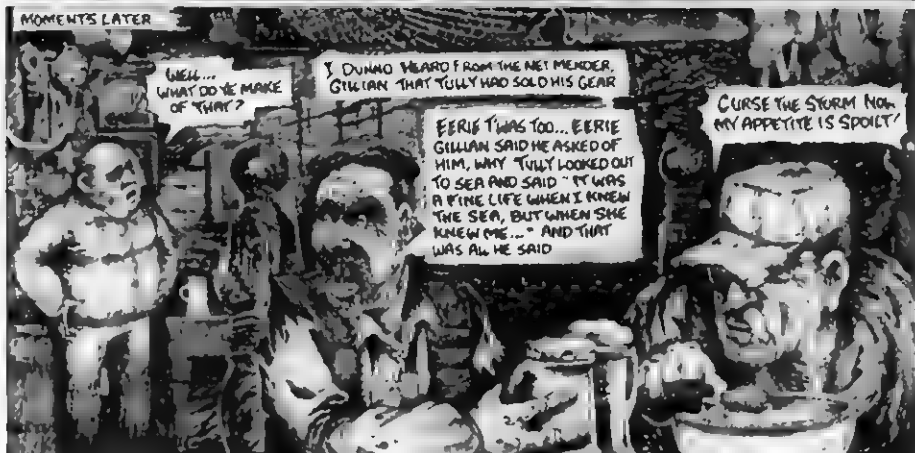 MOMENTS LATER
WELL...
WHAT DO YE MAKE
OF THAT?
I DUNNO HEARD FROM THE NET MENDER,
GILLIAN THAT TULLY HAD SOLD HIS GEAR
EERIE T'WAS TOO... EERIE
GILLIAN SAID HE ASKED OF
HIM, WHY TULLY LOOKED OUT
TO SEA AND SAID ~ IT WAS
A FINE LIFE WHEN I KNEW
THE SEA, BUT WHEN SHE
KNEW ME... ~ AND THAT
WAS ALL HE SAID
CURSE THE STURM NOW
MY APPETITE IS SPOILT!